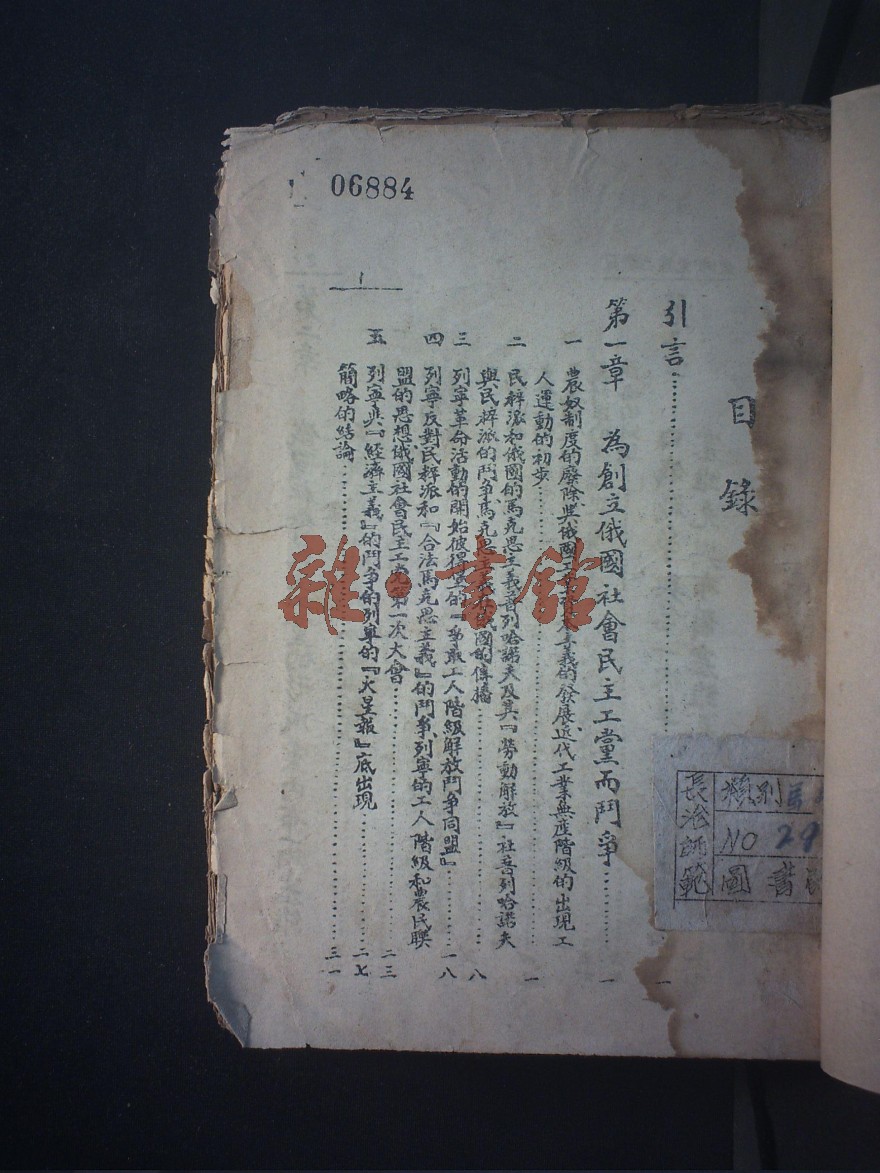 06884
目錄
引言……一
第一章 為創立俄國社會民主工黨而鬥爭……一
一 農奴制度的廢除與俄國工業資本主義的發展、近代工業無產階級的出現工
人運動的初步……一
二 民粹派和俄國的馬克思主義普列哈諾夫及其『勞動解放』社普列哈諾夫
與民粹派的鬥爭、馬克思主義在俄國的傳播……八
三 列寧革命活動的開始彼得堡的『爭取工人階級解放鬥爭同盟』……一八
四 列寧反對民粹派和『合法馬克思主義』的鬥爭、列寧的工人階級和農民聯
盟的思想、俄國社會民主工黨第一次大會……二三
五 列寧與『經濟主義』的鬥爭的列寧的『火星報』底出現……二七
簡略的結論……三一
1
長治師範
類別
NO 29
圖書
雜·書館